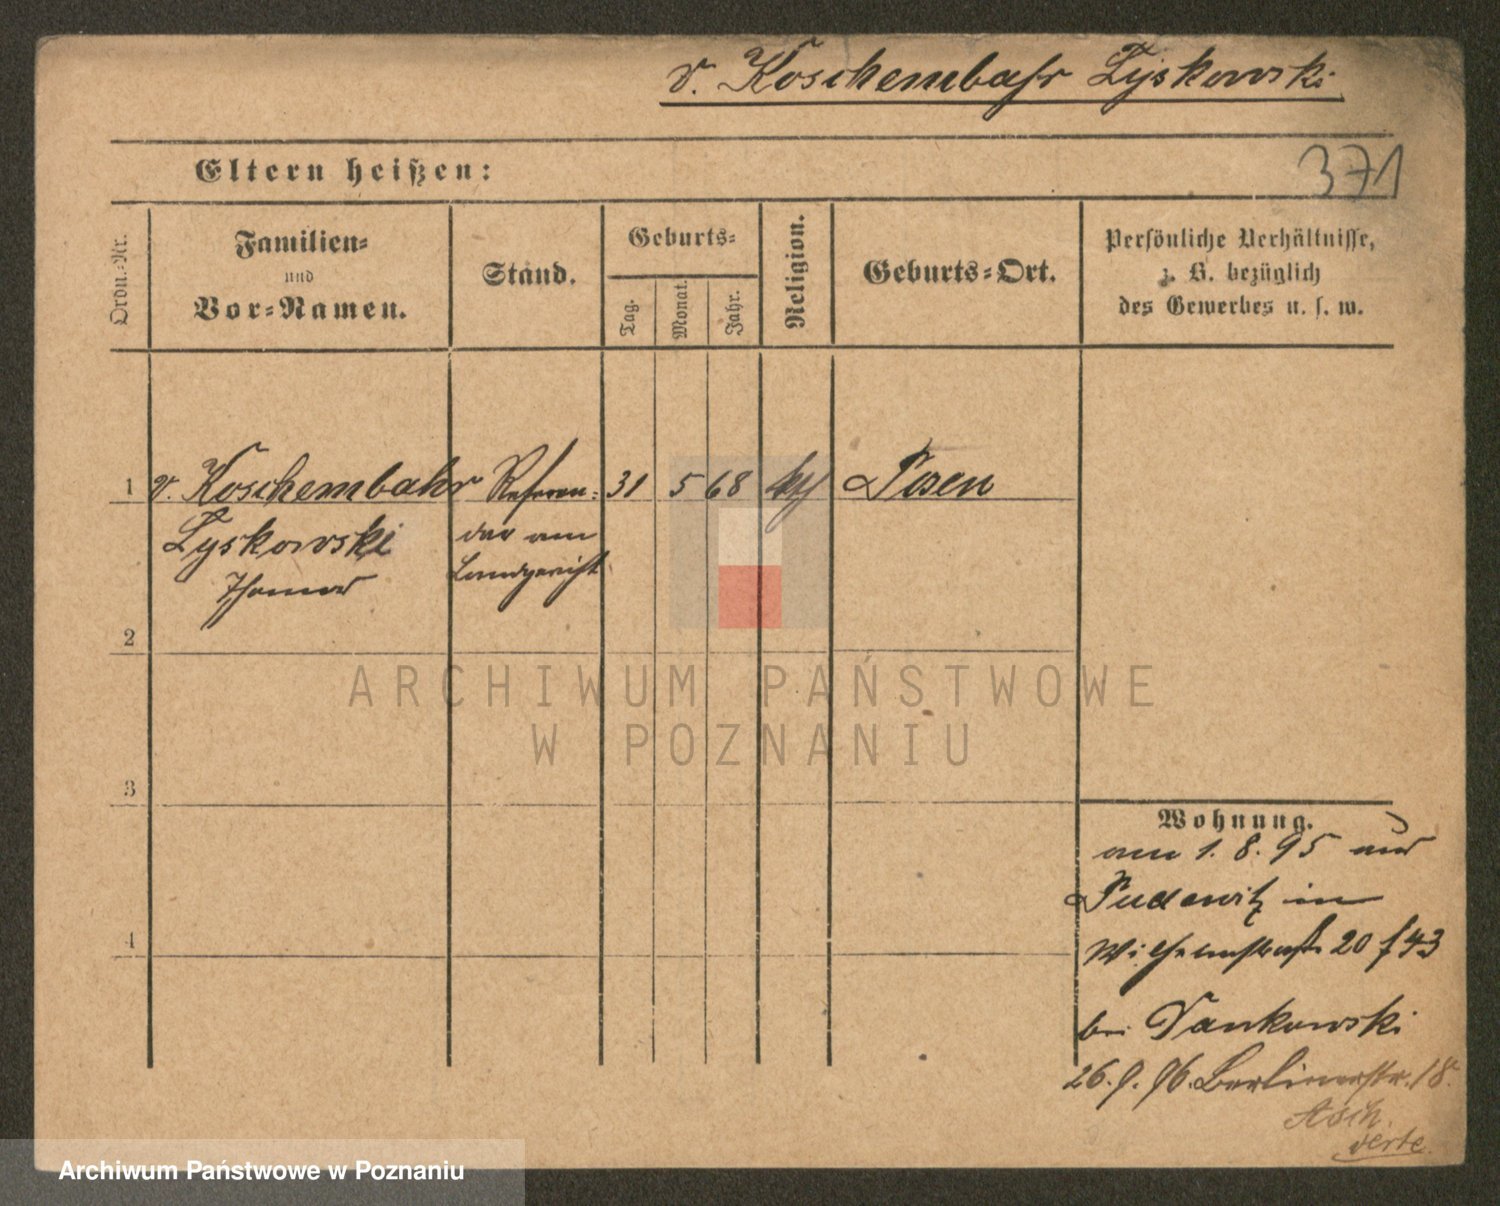 v. Koschembahr Lyskowski
Eltern heißen:
371
Ordn.-Nr.
Familien-
und
Vor-Namen.
Stand.
Geburts-
Tag.
Monat.
Jahr.
Religion.
Geburts-Ort.
Persönliche Verhältnisse,
z. B. bezüglich
des Gewerbes u. s. w.
1 v. Koschembahr Referen- 31 5 68 kth Posen
Lyskowski dar am
Thomas Landgericht
2
3
4
Wohnung.
am 1. 8. 95 aus
Pudewitz in
Wilhelmstraße 20 f 43
bei Jankowski
26. 9. 96. Berlinerstr. 18.
verte
ARCHIWUM PAŃSTWOWE
W POZNANIU
Archiwum Państwowe w Poznaniu